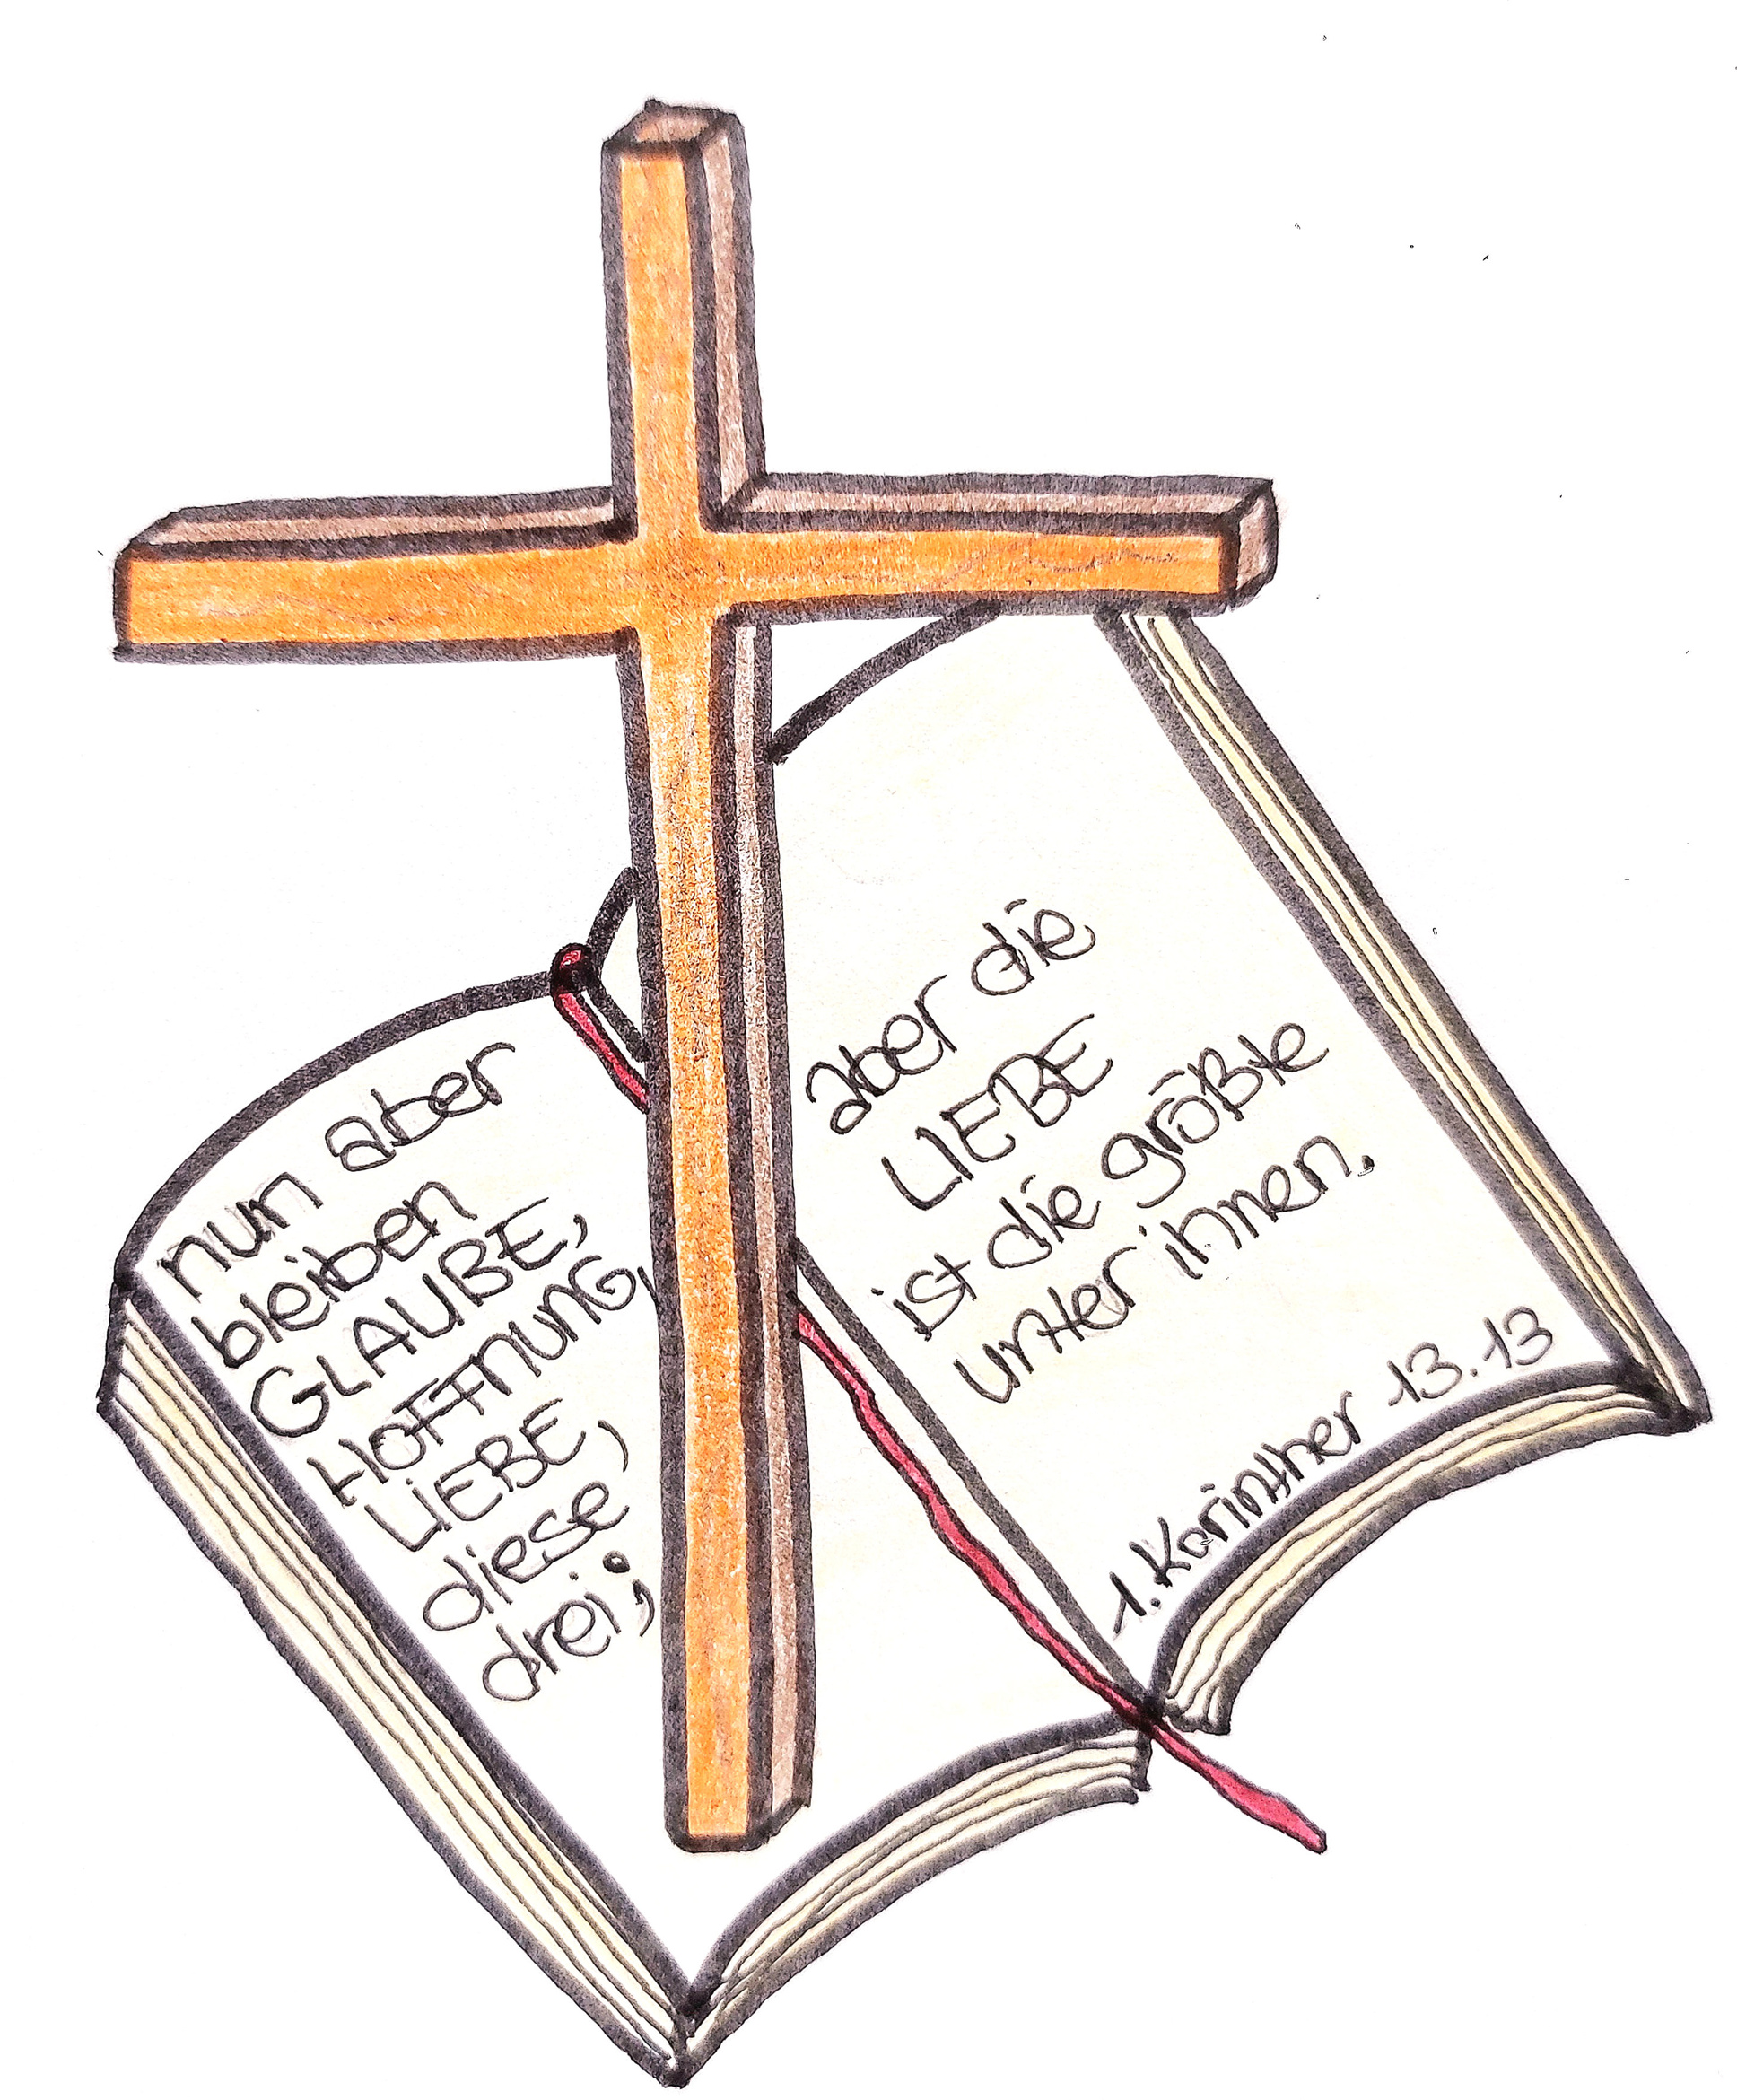 nun aber
bleiben
GLAUBE,
HOFFNUNG,
LIEBE,
diese
drei;
aber die
LIEBE
ist die größte
unter ihnen.
1. Korinther 13.13